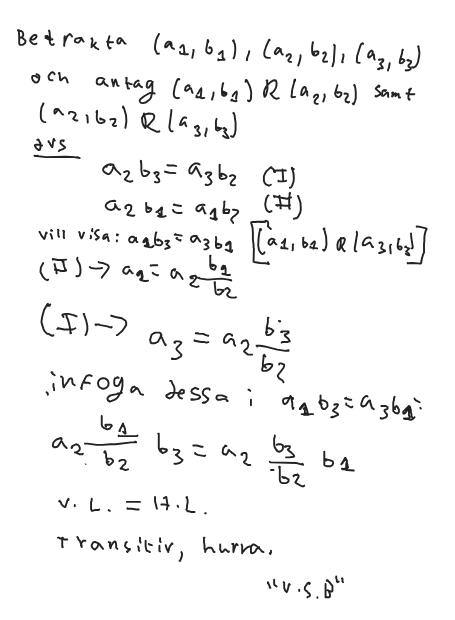 Betrakta (a1, b1), (a2, b2), (a3, b3)
och antag (a1, b1) R (a2, b2) samt
(a2, b2) R (a3, b3)
dvs
a2 b3 = a3 b2 (I)
a2 b1 = a1 b2 (II)
vill visa: a1 b3 = a3 b1 [(a1, b1) R (a3, b3)]
(II) -> a1 = a2 b1/b2
(I) -> a3 = a2 b3/b2
infoga dessa i a1 b3 = a3 b1:
a2 b1/b2 b3 = a2 b3/b2 b1
V.L. = H.L.
Transitiv, hurra.
"V.S.B"